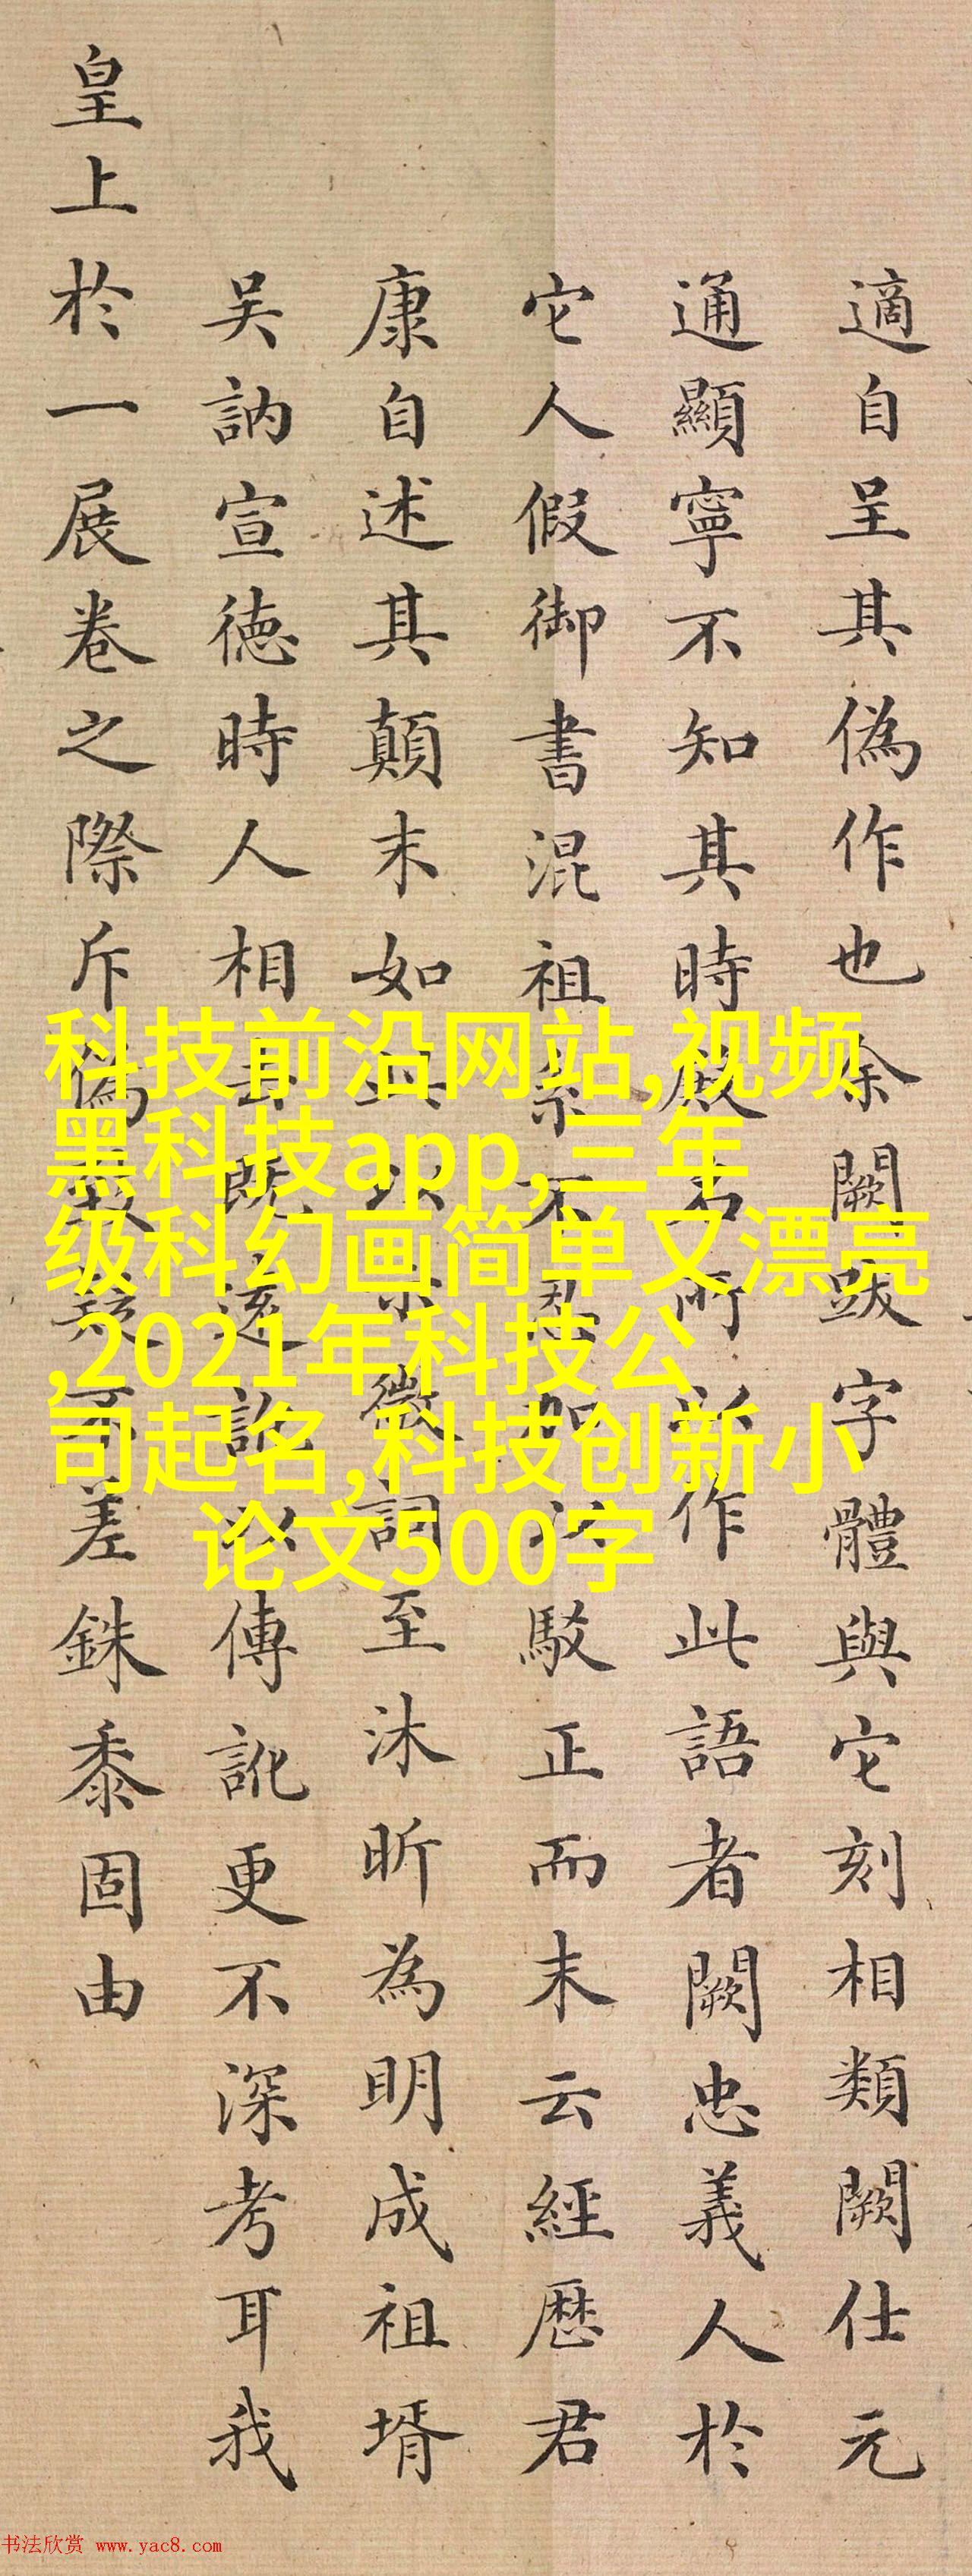 適自呈其偽作也余闕跋字體與它刻相類闕仕元
通顯寧不知其時厰名所作此語者闕忠義人於
它人假御書混祖系不和正駁正而末云經歷君
康自述其顛末如詞至沐昕為明成祖壻
吴訥宣徳時人相去既遠訛以傳訛更不深考耳我
皇上於一展卷之際斥偽差銖黍固由
科技前沿网站,视频
黑科技app,三年
级科幻画简单又漂亮
,2021年科技公
司起名,科技创新小
论文500字
书法欣赏 www.yac8.com